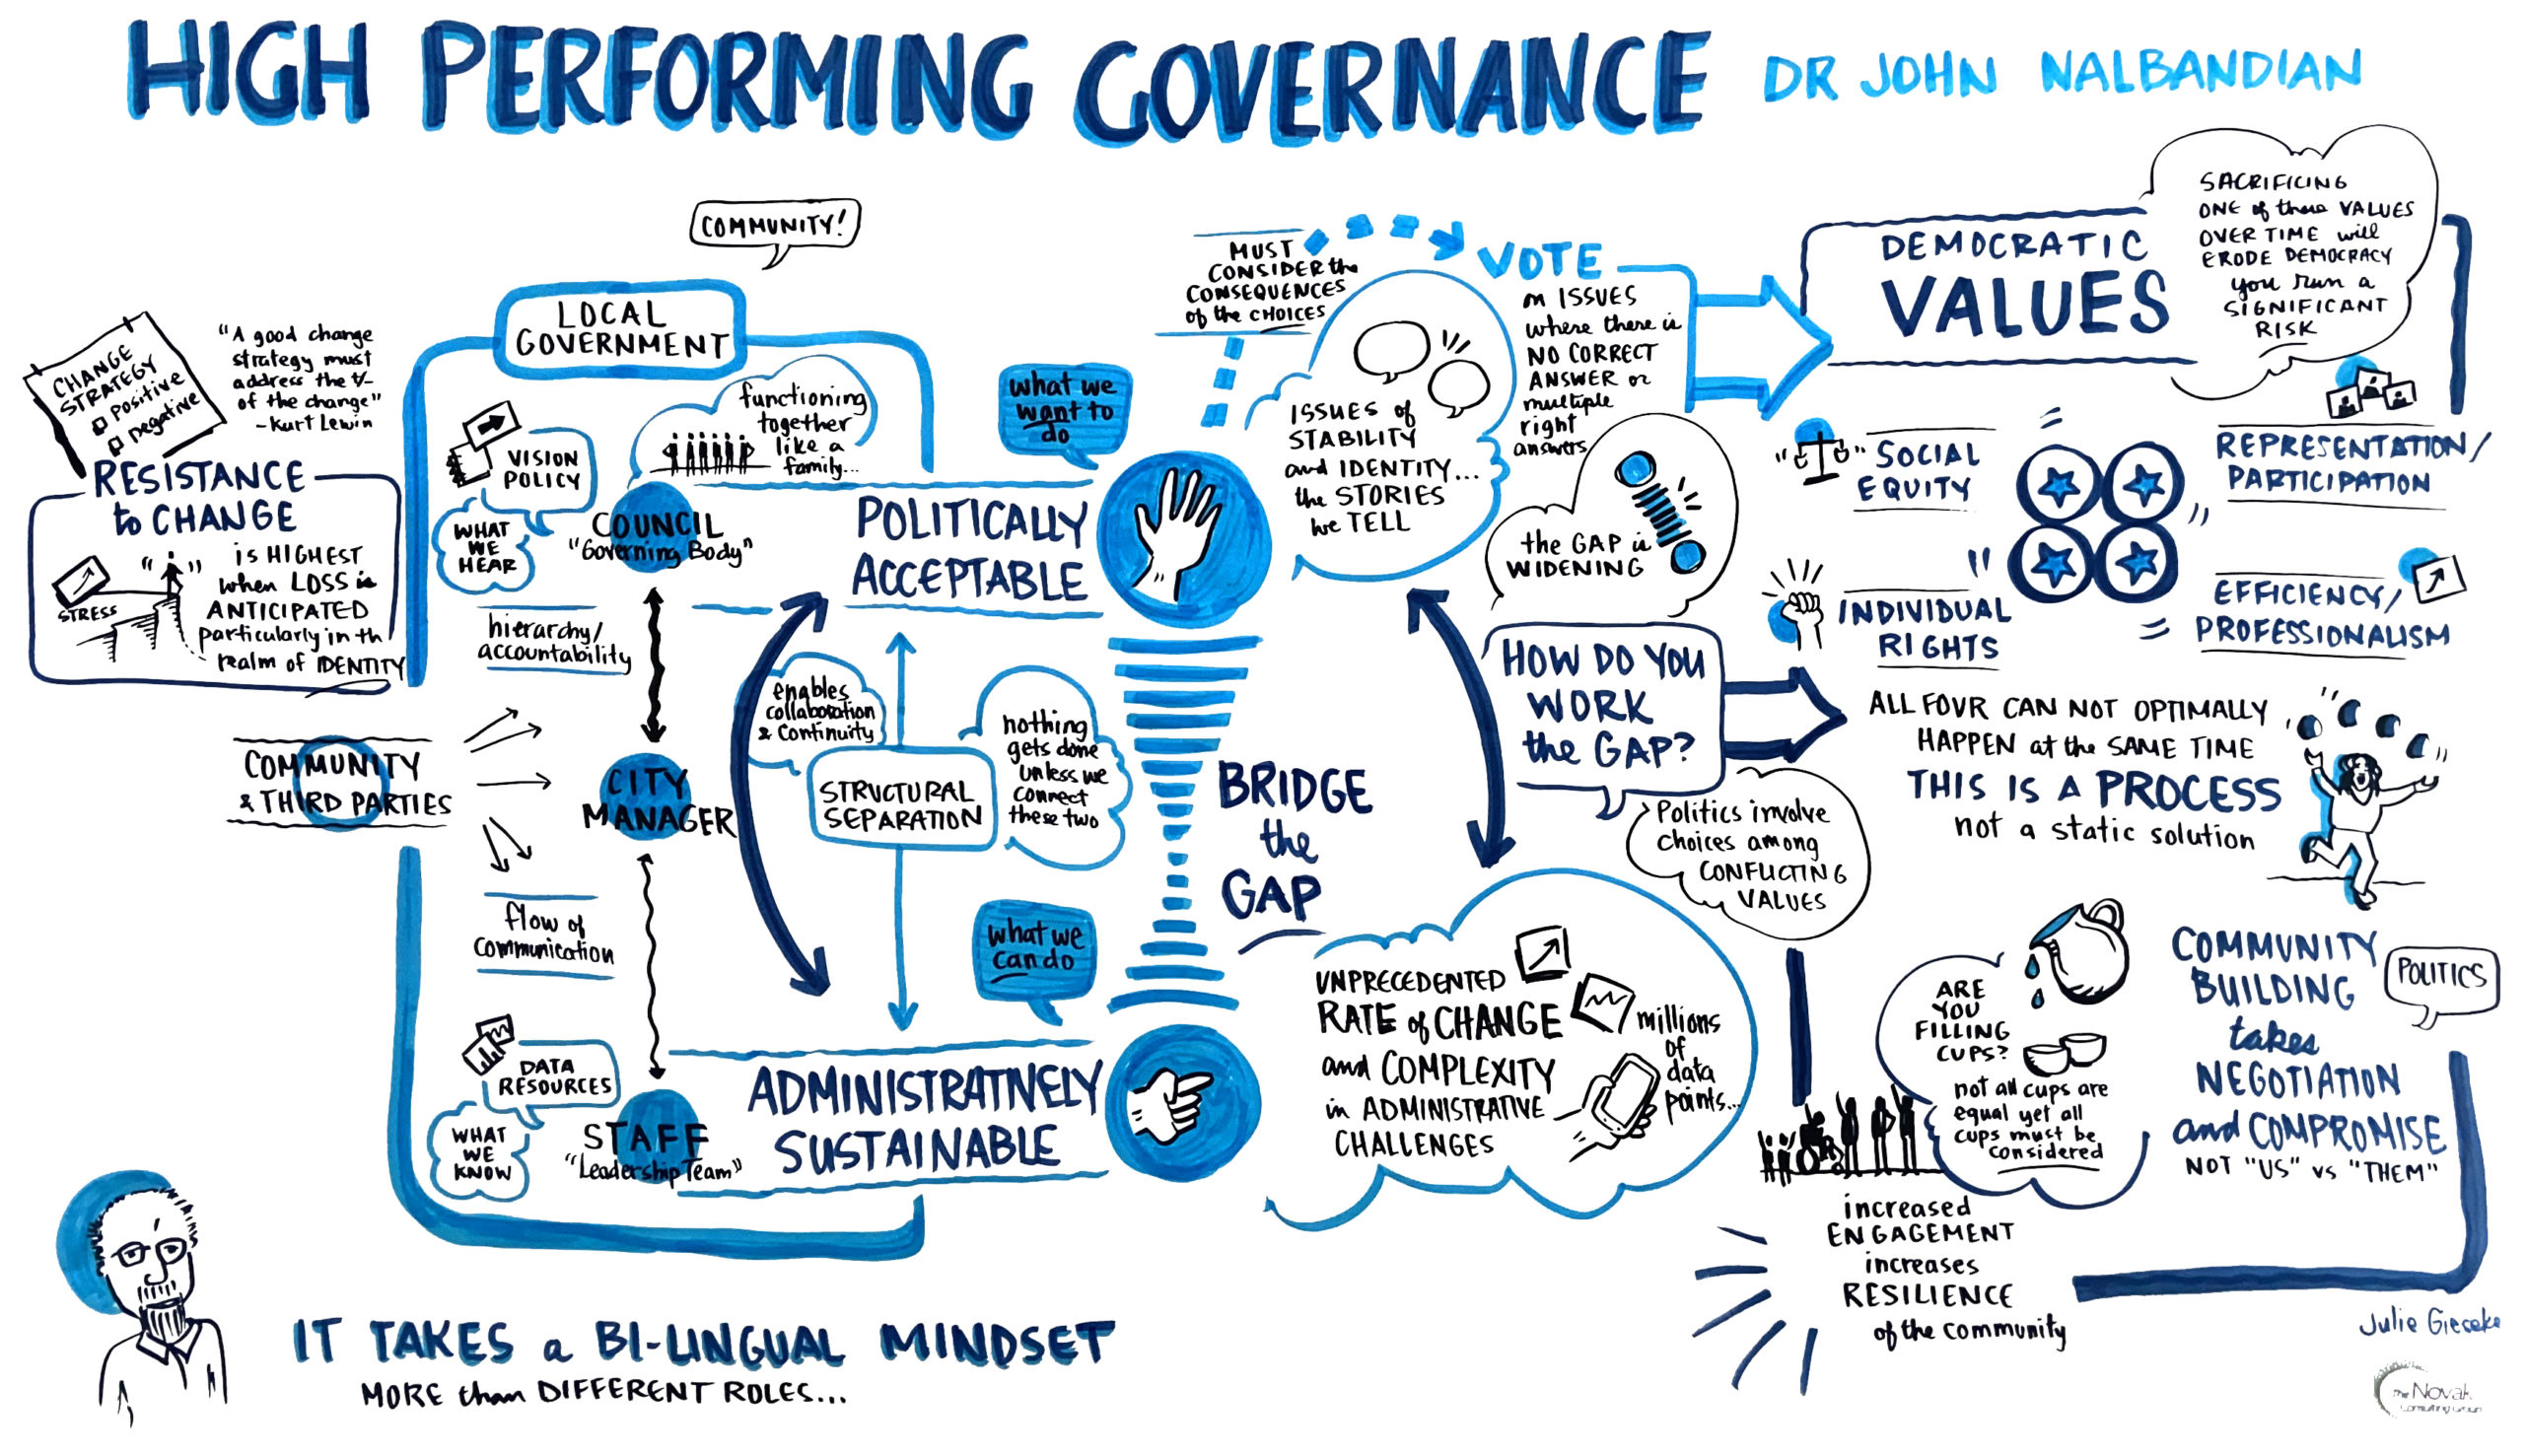 HIGH PERFORMING GOVERNANCE
DR JOHN NALBANDIAN
COMMUNITY!
LOCAL
GOVERNMENT
CHANGE
STRATEGY
positive
negative
"A good change
strategy must
address the +/-
of the change"
- Kurt Lewin
RESISTANCE
to CHANGE
is HIGHEST
when LOSS is
ANTICIPATED
particularly in th
realm of IDENTITY
STRESS
VISION
POLICY
WHAT
WE
HEAR
functioning
together
like a
family...
COUNCIL
"Governing Body"
hierarchy/
accountability
COMMUNITY
& THIRD PARTIES
CITY
MANAGER
flow of
communication
DATA
RESOURCES
WHAT
WE
KNOW
STAFF
"Leadership Team"
what we
want to
do
POLITICALLY
ACCEPTABLE
enables
collaboration
& continuity
STRUCTURAL
SEPARATION
nothing
gets done
unless we
connect
these two
what we
can do
ADMINISTRATIVELY
SUSTAINABLE
BRIDGE
the
GAP
MUST
CONSIDER the
CONSEQUENCES
of the CHOICES
VOTE
on ISSUES
where there is
NO CORRECT
ANSWER or
multiple
right
answers
ISSUES of
STABILITY
and IDENTITY...
the STORIES
we TELL
the GAP is
WIDENING
HOW DO YOU
WORK
the GAP?
Politics involve
choices among
CONFLICTING
VALUES
UNPRECEDENTED
RATE of CHANGE
and COMPLEXITY
in ADMINISTRATIVE
CHALLENGES
millions
of
data
points...
DEMOCRATIC
VALUES
SACRIFICING
ONE of these VALUES
OVER TIME will
ERODE DEMOCRACY
you run a
SIGNIFICANT
RISK
SOCIAL
EQUITY
REPRESENTATION/
PARTICIPATION
INDIVIDUAL
RIGHTS
EFFICIENCY/
PROFESSIONALISM
ALL FOUR CAN NOT OPTIMALLY
HAPPEN at the SAME TIME
THIS IS A PROCESS
not a static solution
ARE
YOU
FILLING
CUPS?
not all cups are
equal yet all
cups must be
considered
COMMUNITY
BUILDING
takes
NEGOTIATION
and COMPROMISE
NOT "US" vs "THEM"
POLITICS
increased
ENGAGEMENT
increases
RESILIENCE
of the community
IT TAKES a BI-LINGUAL MINDSET
MORE than DIFFERENT ROLES...
Julie Gieseke
THE Novak
Consulting Group